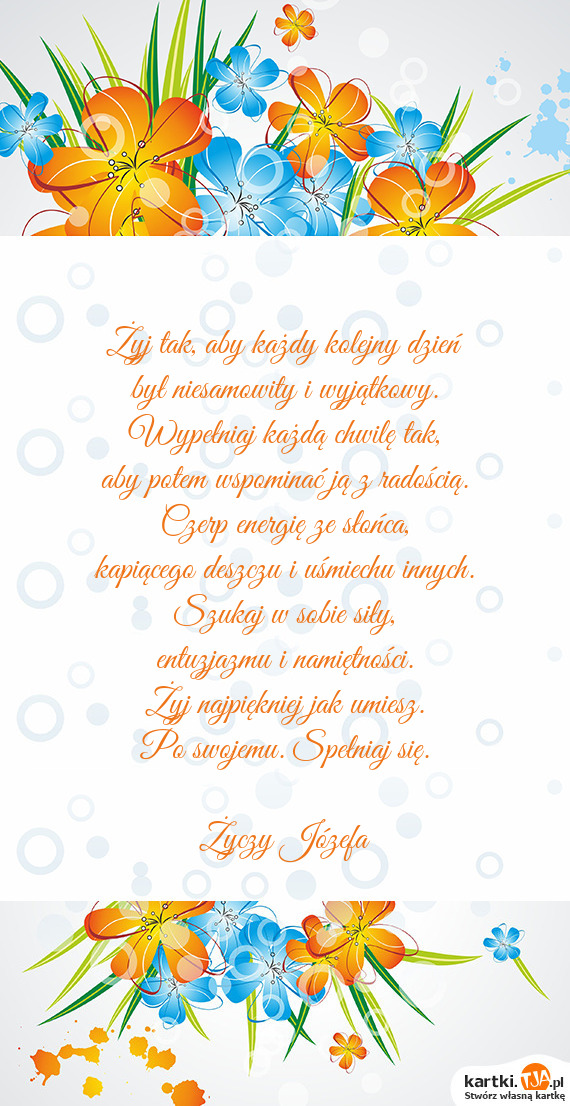 Żyj tak, aby każdy kolejny dzień
był niesamowity i wyjątkowy.
Wypełniaj każdą chwilę tak,
aby potem wspominać ją z radością.
Czerp energię ze słońca,
kapiącego deszczu i uśmiechu innych.
Szukaj w sobie siły,
entuzjazmu i namiętności.
Żyj najpiękniej jak umiesz.
Po swojemu. Spełniaj się.
Życzy Józefa
kartki.TJA.pl
Stwórz własną kartkę